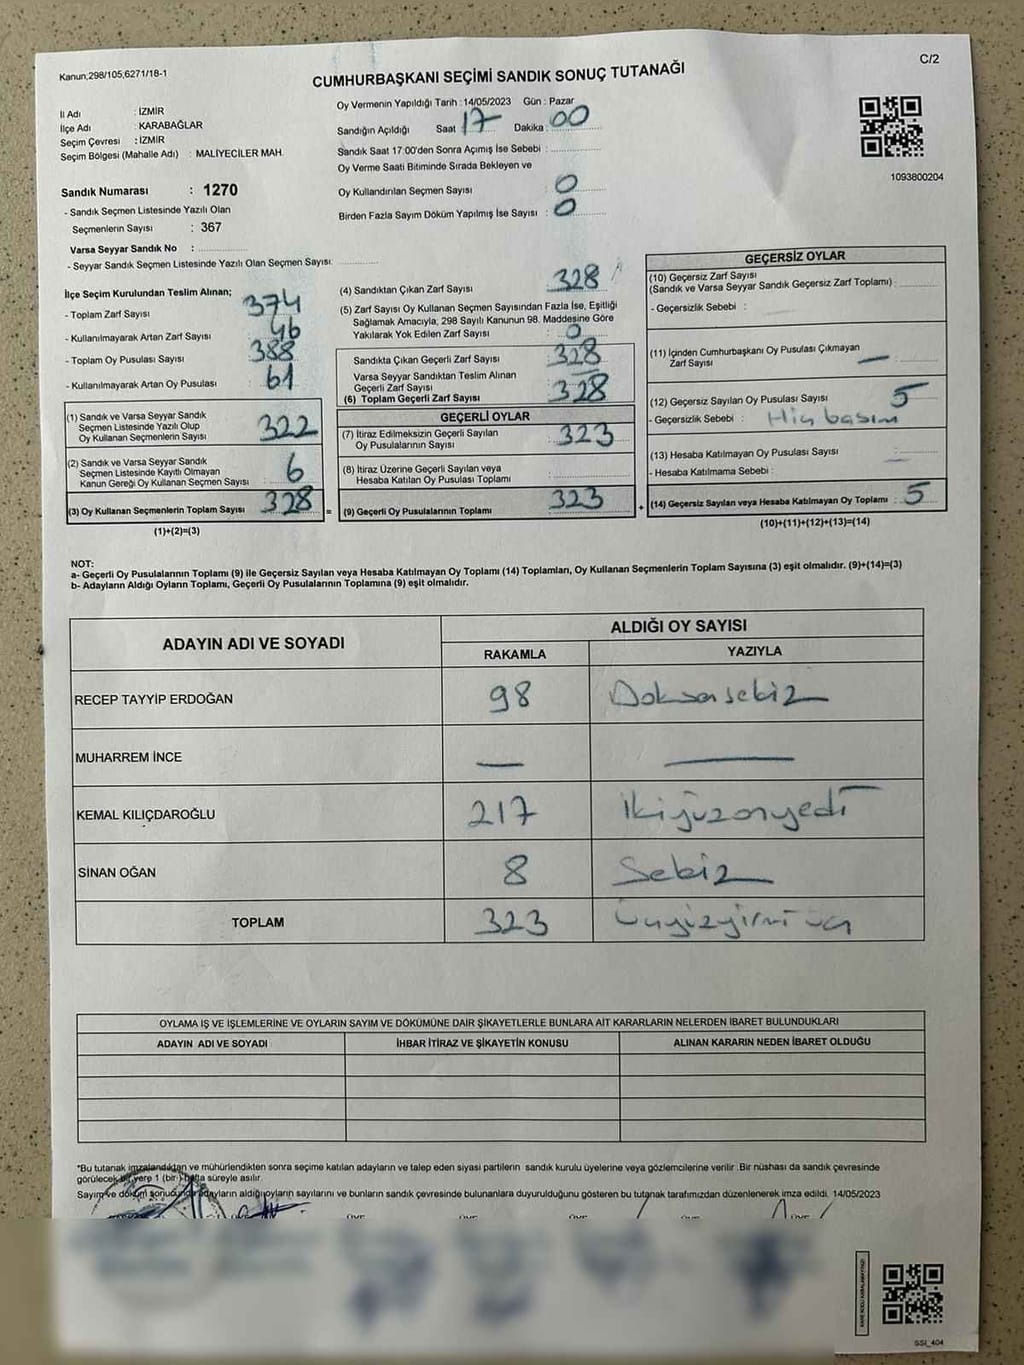 Kanun;298/105,6271/18-1
C/2
CUMHURBAŞKANI SEÇİMİ SANDIK SONUÇ TUTANAĞI
İl Adı : İZMİR
İlçe Adı : KARABAĞLAR
Seçim Çevresi : İZMİR
Seçim Bölgesi (Mahalle Adı) : MALİYECİLER MAH.
Sandık Numarası : 1270
- Sandık Seçmen Listesinde Yazılı Olan
Seçmenlerin Sayısı : 367
Varsa Seyyar Sandık No :
- Seyyar Sandık Seçmen Listesinde Yazılı Olan Seçmen Sayısı:
Oy Vermenin Yapıldığı Tarih : 14/05/2023 Gün : Pazar
Sandığın Açıldığı Saat 17 Dakika 00
Sandık Saat 17:00'den Sonra Açımış İse Sebebi :
Oy Verme Saati Bitiminde Sırada Bekleyen ve
Oy Kullandırılan Seçmen Sayısı 0
Birden Fazla Sayım Döküm Yapılmış İse Sayısı : 0
1093800204
İlçe Seçim Kurulundan Teslim Alınan;
- Toplam Zarf Sayısı 374
- Kullanılmayarak Artan Zarf Sayısı 46
- Toplam Oy Pusulası Sayısı 388
- Kullanılmayarak Artan Oy Pusulası 61
(1) Sandık ve Varsa Seyyar Sandık
Seçmen Listesinde Yazılı Olup
Oy Kullanan Seçmenlerin Sayısı 322
(2) Sandık ve Varsa Seyyar Sandık
Seçmen Listesinde Kayıtlı Olmayan
Kanun Gereği Oy Kullanan Seçmen Sayısı 6
(3) Oy Kullanan Seçmenlerin Toplam Sayısı 328 =
(1)+(2)=(3)
(4) Sandıktan Çıkan Zarf Sayısı 328
(5) Zarf Sayısı Oy Kullanan Seçmen Sayısından Fazla İse, Eşitliği
Sağlamak Amacıyla, 298 Sayılı Kanunun 98. Maddesine Göre
Yakılarak Yok Edilen Zarf Sayısı : 0
Sandıkta Çıkan Geçerli Zarf Sayısı : 328
Varsa Seyyar Sandıktan Teslim Alınan
Geçerli Zarf Sayısı
(6) Toplam Geçerli Zarf Sayısı 328
GEÇERLİ OYLAR
(7) İtiraz Edilmeksizin Geçerli Sayılan
Oy Pusulalarının Sayısı 323
(8) İtiraz Üzerine Geçerli Sayılan veya
Hesaba Katılan Oy Pusulası Toplamı
(9) Geçerli Oy Pusulalarının Toplamı 323 +
GEÇERSİZ OYLAR
(10) Geçersiz Zarf Sayısı
(Sandık ve Varsa Seyyar Sandık Geçersiz Zarf Toplamı) :
- Geçersizlik Sebebi :
(11) İçinden Cumhurbaşkanı Oy Pusulası Çıkmayan
Zarf Sayısı —
(12) Geçersiz Sayılan Oy Pusulası Sayısı 5
- Geçersizlik Sebebi :
(13) Hesaba Katılmayan Oy Pusulası Sayısı : —
- Hesaba Katılmama Sebebi :
(14) Geçersiz Sayılan veya Hesaba Katılmayan Oy Toplamı : 5
(10)+(11)+(12)+(13)=(14)
NOT:
a- Geçerli Oy Pusulalarının Toplamı (9) ile Geçersiz Sayılan veya Hesaba Katılmayan Oy Toplamı (14) Toplamları, Oy Kullanan Seçmenlerin Toplam Sayısına (3) eşit olmalıdır. (9)+(14)=(3)
b- Adayların Aldığı Oyların Toplamı, Geçerli Oy Pusulalarının Toplamına (9) eşit olmalıdır.
ADAYIN ADI VE SOYADI
ALDIĞI OY SAYISI
RAKAMLA YAZIYLA
RECEP TAYYİP ERDOĞAN 98 Doksansekiz
MUHARREM İNCE — —
KEMAL KILIÇDAROĞLU 217 İkiyüzonyedi
SİNAN OĞAN 8 Sekiz
TOPLAM 323 Üçyüzyirmi üç
OYLAMA İŞ VE İŞLEMLERİNE VE OYLARIN SAYIM VE DÖKÜMÜNE DAİR ŞİKAYETLERLE BUNLARA AİT KARARLARIN NELERDEN İBARET BULUNDUKLARI
ADAYIN ADI VE SOYADI İHBAR İTİRAZ VE ŞİKAYETİN KONUSU ALINAN KARARIN NEDEN İBARET OLDUĞU
*Bu tutanak imzalandıktan ve mühürlendikten sonra seçime katılan adayların ve talep eden siyasi partilerin sandık kurulu üyelerine veya gözlemcilerine verilir .Bir nüshası da sandık çevresinde
görülecek bir yere 1 (bir) hafta süreyle asılır.
Sayım ve döküm sonucunda adayların aldığı oyların sayılarını ve bunların sandık çevresinde bulunanlara duyurulduğunu gösteren bu tutanak tarafımızdan düzenlenerek imza edildi. 14/05/2023
SSI_404